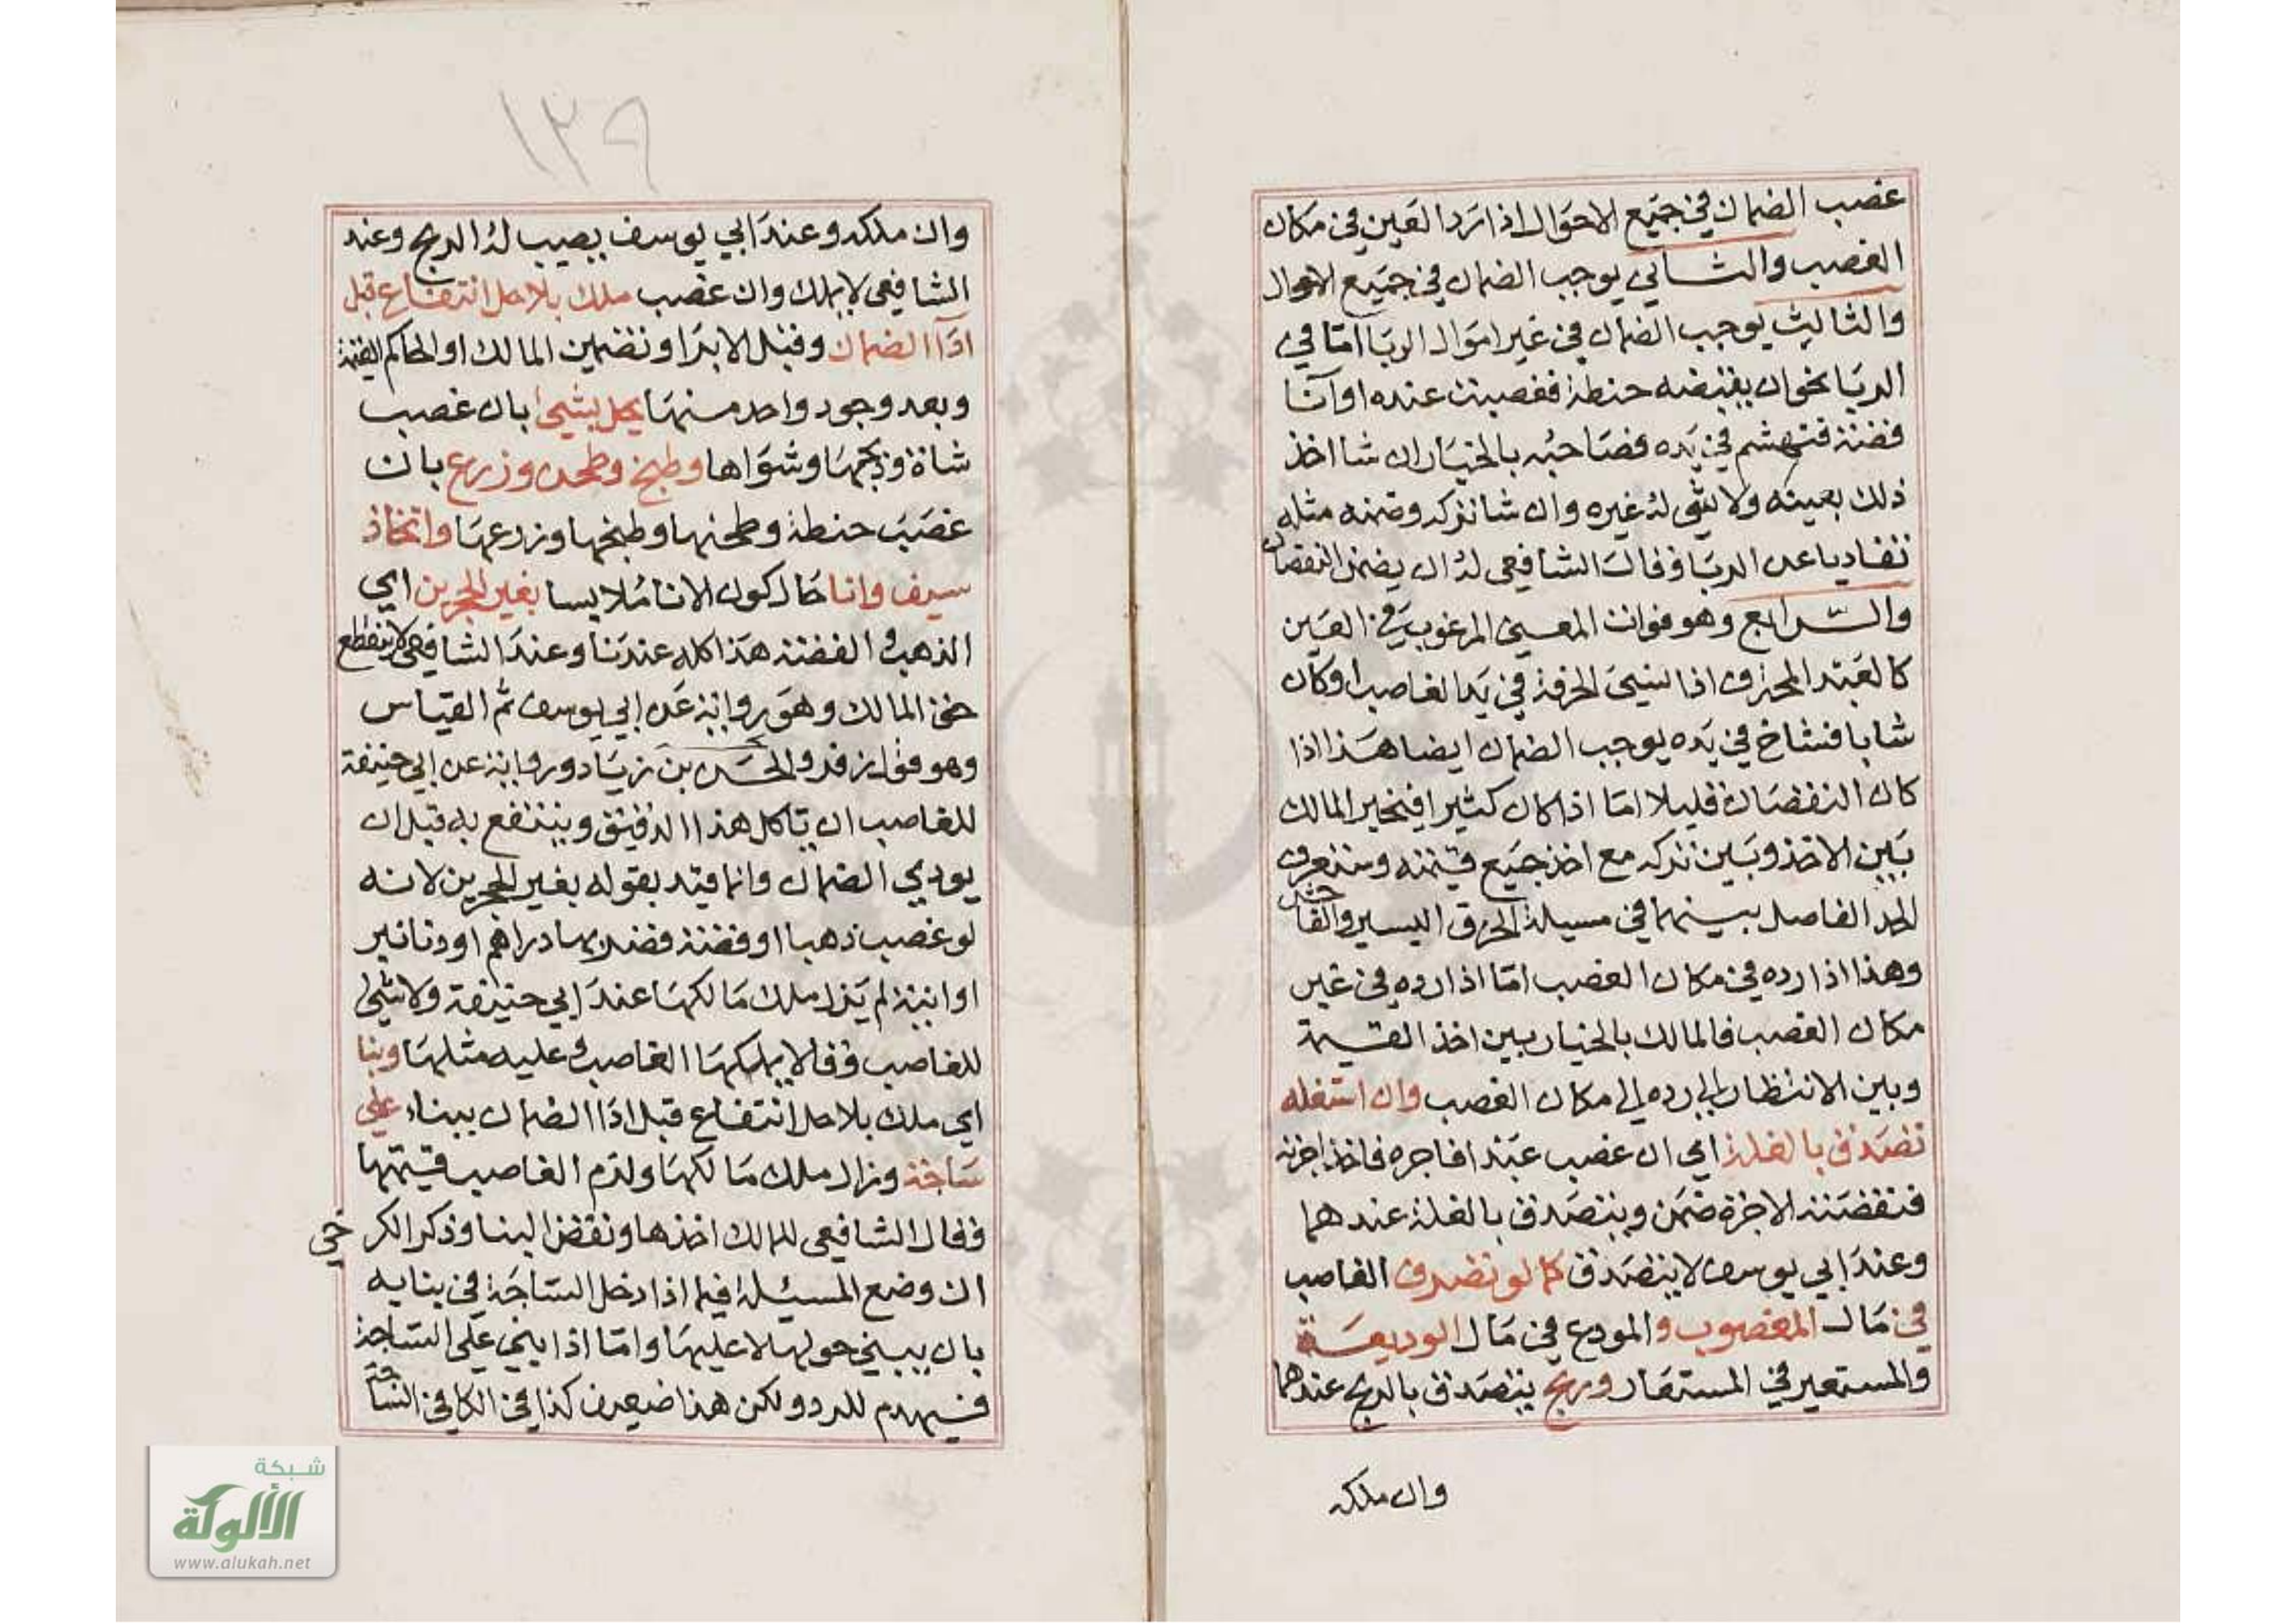 غصب الضمان في جميع الاحوال اذا رد العين في مكان
الغصب والثاني يوجب الضمان في جميع الاحوال
والثالث يوجب الضمان في غير اموال الربا اما في
الربا نحو ان يقبضه حنطة فعصبت عنده او آنا
فضة فتهشم في يده فصاحبه بالخيار ان شا اخذ
ذلك بعينه ولا شي له غيره وان شا تركه وضمنه مثله
تفاديا عن الربا وقال الشافعي له ان يضمن النقصان
والرابع وهو فوات المعنى المرغوب في العين
كالعبد المحترف اذا نسي الحرفة في يد الغاصب او كان
شابا فشاخ في يده يوجب الضمان ايضا هذا اذا
كان النقصان قليلا اما اذا كان كثيرا فيخير المالك
بين الاخذ وبين تركه مع اخذ جميع قيمته وستعرف
الحد الفاصل بينهما في مسيلة الخرق اليسير والفاحش
وهذا اذا رده في مكان الغصب اما اذا رده في غير
مكان الغصب فالمالك بالخيار بين اخذ القيمة
وبين الانتظار الى رده الى مكان الغصب وان استغله
تصدق بالغلة اي ان غصب عبدا فاجره فاخذ اجرته
فنقصته الاجرة ضمن ويتصدق بالغلة عندهما
وعند ابي يوسف لا يتصدق كما لو تصرف الغاصب
في مال المغصوب والمودع في مال الوديعة
والمستعير في المستعار وربح يتصدق بالربح عندهما
وان ملكه
١٢٩
وان ملكه وعند ابي يوسف يصيب له الربح وعند
الشافعي لا يملك وان غصب ملك بلا حل انتفاع قبل
ادآ الضمان وقبل الابرا وتضمين المالك او الحاكم القيمة
وبعد وجود واحد منها يحل بشي بان غصب
شاة وذبحها وشواها وطبخ وطحن وزرع بان
غصب حنطة وطحنها وطبخها وزرعها واتخاذ
سيف وانا حال كون الانا ملابسا بغير الحجرين اي
الذهب والفضة هذا كله عندنا وعند الشافعي لا ينقطع
حق المالك وهو رواية عن ابي يوسف ثم القياس
وهو قول زفر والحسن بن زياد ورواية عن ابي حنيفة
للغاصب ان ياكل هذا الدقيق وينتفع به قبل ان
يودي الضمان وانما قيد بقوله بغير الحجرين لانه
لو غصب ذهبا او فضة فضربها دراهم او دنانير
او انية لم يزل ملك مالكها عند ابي حنيفة ولا شي
للغاصب وقالا يملكها الغاصب وعليه مثلها وبنا
اي ملك بلا حل انتفاع قبل ادا الضمان ببناء على
ساجة وزال ملك مالكها ولزم الغاصب قيمتها
وقال الشافعي للمالك اخذها ونقض البنا وذكر الكرخي
ان وضع المسئلة فيما اذا دخل الساجة في بنايه
بان يبني حولها لا عليها واما اذا بنى على الساجة
فيهدم للرد ولكن هذا ضعيف كذا في الكافي الساجة
شبكة
الألوكة
www.alukah.net